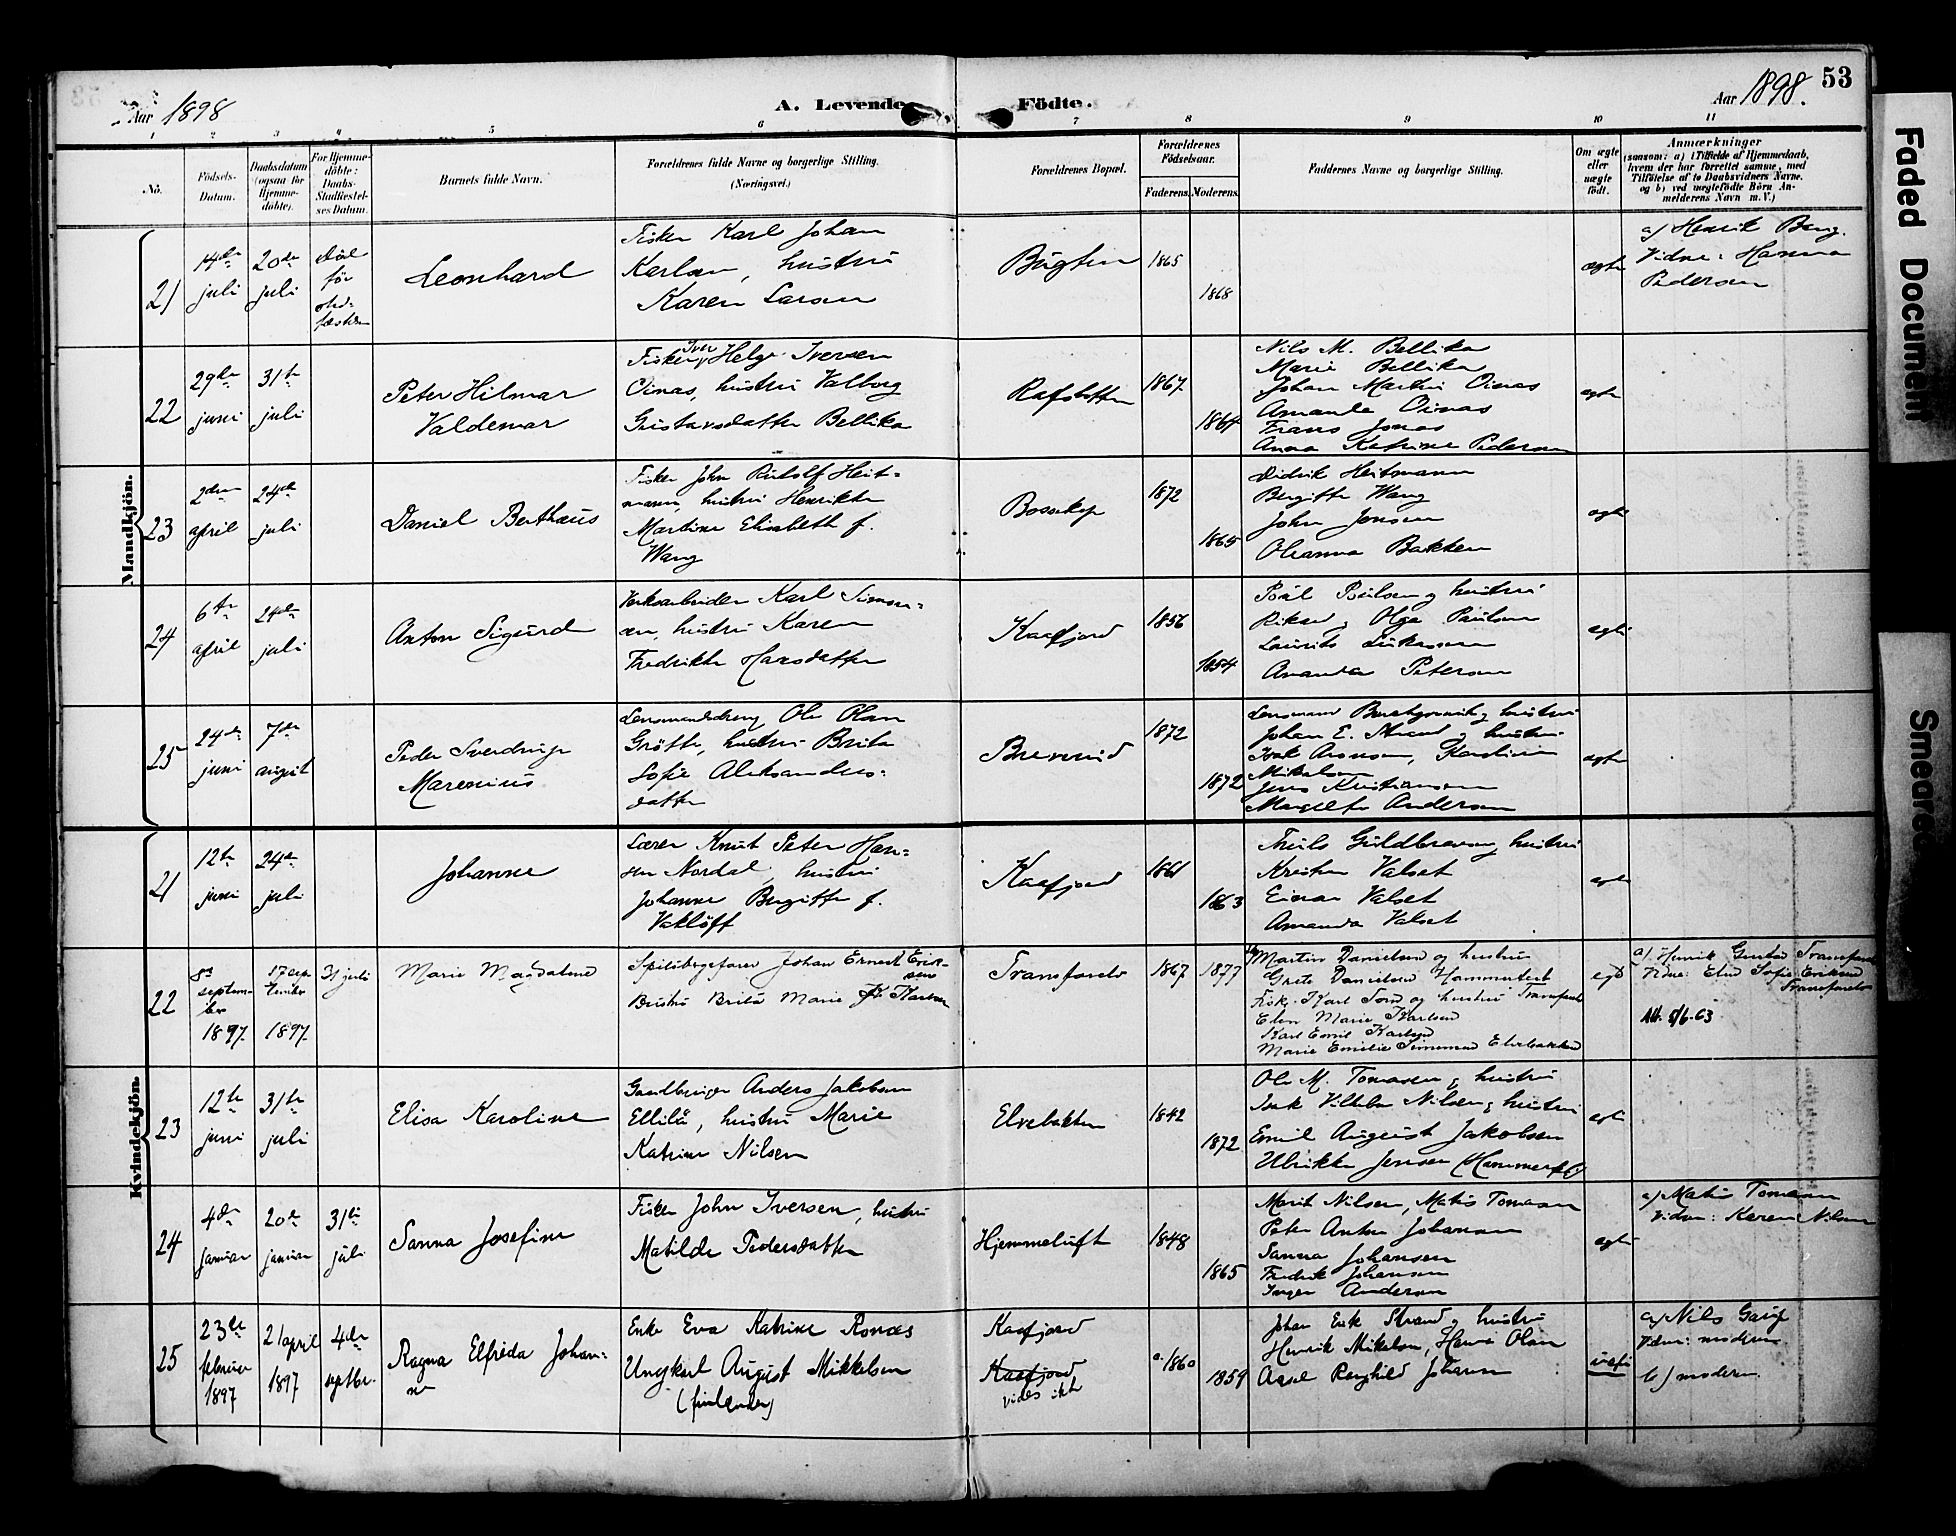 53
Aar 1898
A. Levende Födte.
Aar 1898.
1 2 3 4 5 6 7 8 9 10 11
No.
Födsels-
Datum.
Daabsdatum
(ogsaa for
Hjemme-
döbte).
For Hjemme-
döbte:
Daabs-
Stadfæstel-
ses Datum.
Barnets fulde Navn.
Forældrenes fulde Navne og borgerlige Stilling.
(Næringsvei.)
Forældrenes Bopæl.
Forældrenes
Födselsaar.
Faderens.
Moderens.
Faddernes Navne og borgerlige Stilling.
Om ægte
eller
uægte
födt.
Anmærkninger
(saasom: a) i Tilfælde af Hjemmedaab,
hvem der har forrettet samme, med
Tilföielse af to Daabsvidners Navne,
og b) ved uægtefödte Börn An-
melderens Navn m. V.)
Mandkjön.
21
14de
juli
20de
juli
död
før
stad-
fæstelsen
Leonhard
Fisker Karl Johan
Karlsen, hustru
Karen Larsen
Bugten
1865
1868
ægte
a/ Henrik Berg.
Vidne: Hanna
Pedersen
22
29de
juni
31te
juli
Peter Hilmar
Valdemar
Fisker Iver Helge Iversen
Oinas, hustru Valborg
Gustavsdatter Bellika
Rafsbotten
1867.
1864
Nils M. Bellika
Marie Bellika
Johan Martin Oinas
Amanda Oinas
Frans Jonas
Anna Katrine Pedersen
ægte
23
2den
april
24de
juli
Daniel Berthæus
Fisker John Rudolf Heit-
mann, hustru Henrikke
Martine Elisabeth f.
Wang
Bossekop
1872
1865
Didrik Heitmann
Bergitte Wang
John Jensen
Oleanna Bakken
ægte
24
6te
april
24de
juli
Anton Sigurd
Verksarbeider Karl Simon-
sen, hustru Karen
Fredrikke Hansdatter
Kaafjord
1856
1854
Paul Paulsen og hustru
Rikard og Olga Paulsen
Laurits Lukassen
Amanda Petersen
ægte
25
24de
juni
7de
august
Peder Sverdrup
Marenius
Lensmandsdreng Ole Olsen
Grötte, hustru Brita
Sofie Aleksanders-
datter
Bremsund
1872
1872
Lensmand og hustru
Johan E. Strand og hustru
Isak Aronsen, Karoline
Mikalsen
Jens Kristiansen
Margrethe Andersen
ægte
Kvindekjön.
21
12te
juni
24de
juli
Johanne
Lærer Knut Peter Han-
sen Nordal, hustru
Johanne Bergitte f.
Vaklöff
Kaafjord
1861
1863
Truls Guldbransen og hustru
Kristen Valset
Einar Valset
Amanda Valset
ægte
22
8de
septem-
ber
1897.
17 sep-
tember
1897.
31 juli
Marie Magdalena
Spitsbergsfarer Johan Ernest Erik-
sen
Hustru Brita Marie f. Karlsen
Transfarelv
1867
1877
Martin Danielsen og hustru
Grete Danielsen Hammerfest
Fisk. Karl Tord og hustru Transfarelv
Elen Marie Karlsen
Karl Emil Karlsen
Marie Emelie Simonsen Elvebakken
ægte
a/. Henrik Gustav Transfarelv
Vidne: Elen Sofie Eriksen
Transfarelv
Att. 5/6-63
23
12te
juni
31te
juli
Elisa Karoline
Gaardbruger Anders Jakobsen
Ellilä, hustru Marie
Katrine Nilsen
Elvebakken
1842
1872
Ole M. Tomasen og hustru
Isak Vilhelm Nilsen og hustru
Emil August Jakobsen
Ulrikke Jensen (Hammerfest)
ægte
24
4de
januar
20de
januar
31te
juli
Sanna Josefine
Fisker John Iversen, hustru
Matilde Pedersdatter
Hjemmeluft
1848
1865
Marit Nilsen, Matis Tomasen
Peter Anton Johansen
Sanna Johansen
Fredrik Johansen
Inger Andersen
ægte
a/ Matis Tomasen
Vidne: Karen Nilsen
25
23de
februar
1897
21 april
1897
4de
septbr.
Ragna Elfrida Johan-
ne
Enke Eva Katrine Ronæs
Ungkarl August Mikkelsen
(finlænder)
Kaafjord
Kaafjord
vides ikke
c. 1860
1859
Johan Erik Strand og hustru
Henrik Mikalsen, Hanna Olsen
Aasel Renghild Johansen
uægte
a/ Nils Gaup
Vidne: moderen
b/ moderen.
Faded Document
Smeared